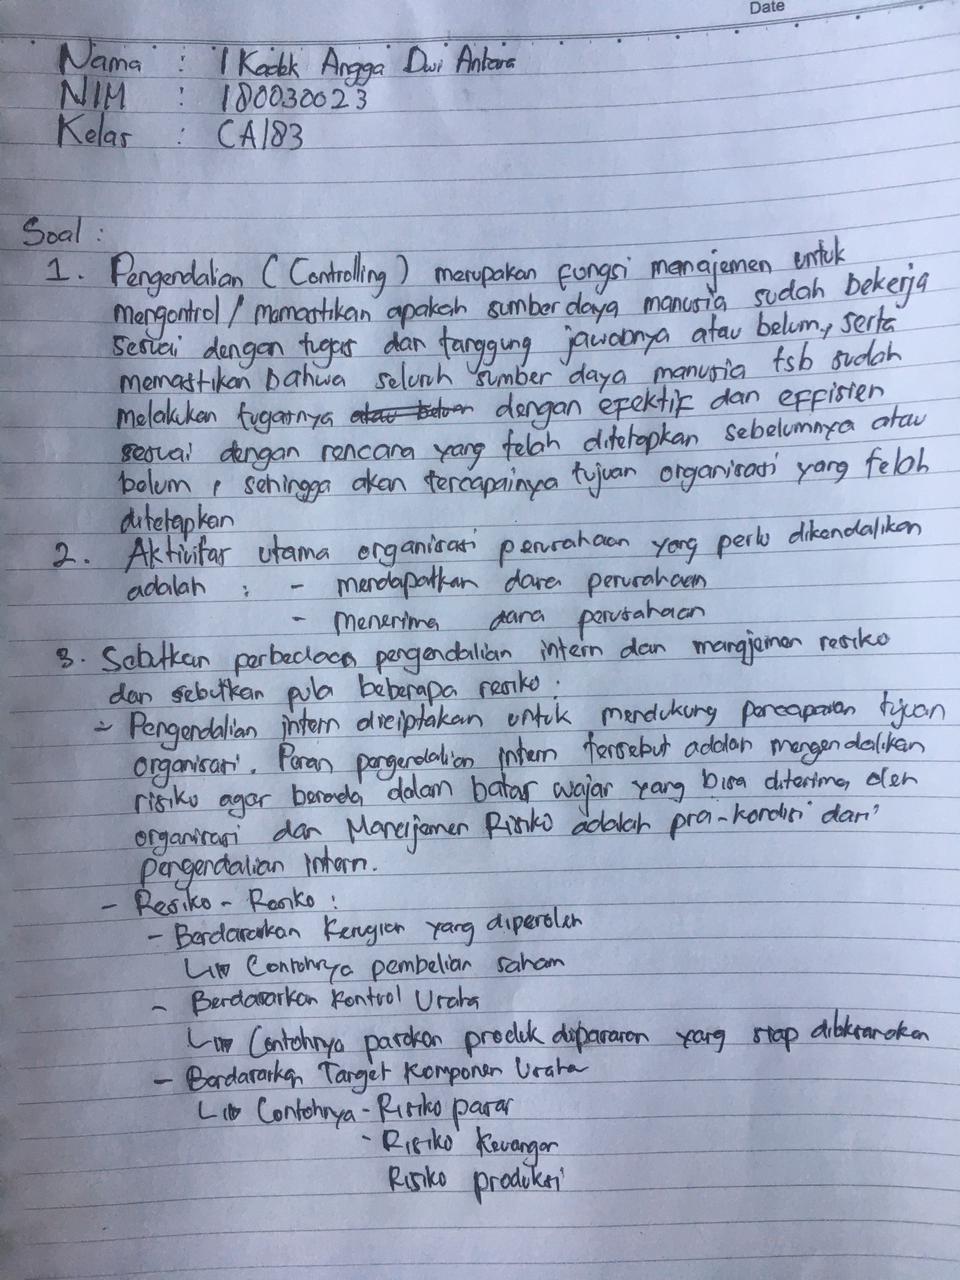 Date
Nama : I Kadek Angga Dwi Antara
NIM : 180030023
Kelas : CA183
Soal :
1. Pengendalian (Controlling) merupakan fungsi manajemen untuk
mengontrol / memastikan apakah sumber daya manusia sudah bekerja
sesuai dengan tugas dan tanggung jawabnya atau belum, serta
memastikan bahwa seluruh sumber daya manusia tsb sudah
melakukan tugasnya atau belum dengan efektif dan effisien
sesuai dengan rencana yang telah ditetapkan sebelumnya atau
belum, sehingga akan tercapainya tujuan organisasi yang telah
ditetapkan
2. Aktivitas utama organisasi perusahaan yang perlu dikendalikan
adalah : - mendapatkan dana perusahaan
- menerima dana perusahaan
3. Sebutkan perbedaan pengendalian intern dan manajemen resiko
dan sebutkan pula beberapa resiko :
- Pengendalian intern diciptakan untuk mendukung pencapaian tujuan
organisasi. Peran pengendalian intern tersebut adalah mengendalikan
risiko agar berada dalam batas wajar yang bisa diterima oleh
organisasi dan Manajemen Risiko adalah pra-kondisi dari
pengendalian intern.
- Resiko - Resiko :
- Berdasarkan Kerugian yang diperoleh
Contohnya pembelian saham
- Berdasarkan Kontrol Usaha
Contohnya pasokan produk dipasaran yang siap
- Berdasarkan Target Komponen Usaha
Contohnya - Risiko pasar
- Risiko Keuangan
Risiko produksi